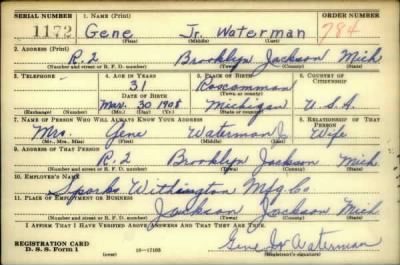 SERIAL NUMBER 1. NAME (Print) ORDER NUMBER
1172 Gene Jr. Waterman 784
(First) (Middle) (Last)
2. ADDRESS (Print)
R.2 Brooklyn Jackson Mich
(Number and street or R. F. D. number) (Town) (County) (State)
3. TELEPHONE 4. AGE IN YEARS 5. PLACE OF BIRTH 6. COUNTRY OF CITIZENSHIP
31 Roscommon
DATE OF BIRTH (Town or county)
Mar. 30 1908 Michigan U.S.A.
(Exchange) (Number) (Mo.) (Day) (Yr.) (State or country)
7. NAME OF PERSON WHO WILL ALWAYS KNOW YOUR ADDRESS 8. RELATIONSHIP OF THAT PERSON
Mrs. Gene Waterman Jr Wife
(Mr., Mrs., Miss) (First) (Middle) (Last)
9. ADDRESS OF THAT PERSON
R.2 Brooklyn Jackson Mich
(Number and street or R. F. D. number) (Town) (County) (State)
10. EMPLOYER'S NAME
Sparks Withington Mfg. Co
11. PLACE OF EMPLOYMENT OR BUSINESS
Jackson Jackson Mich
(Number and street or R. F. D. number) (Town) (County) (State)
I AFFIRM THAT I HAVE VERIFIED ABOVE ANSWERS AND THAT THEY ARE TRUE.
REGISTRATION CARD Gene Jr Waterman
D. S. S. Form 1 (over) 16—17105 (Registrant's signature)